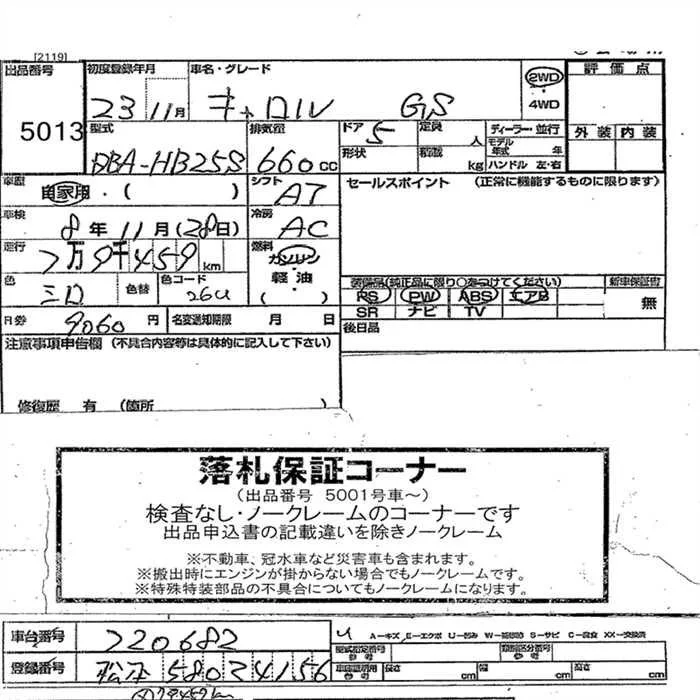 [2119]
出品番号 初度登録年月 車名・グレード 2WD 評価点
5013 23 11月 キャロル GS 4WD
型式 排気量 ドア 5 定員 人 ディーラー・並行 外装 内装
DBA-HB25S 660cc 形状 積載 kg モデル年式 年 ハンドル 左・右
車歴 自家用・( ) シフト AT セールスポイント (正常に機能するものに限ります)
車検 8年11月(28日) 冷房 AC
走行 7万9千459km 燃料 ガソリン・軽油 ( )
色 色替 色コード 26U 装備品(純正品に限り○をつけてください) 新車保証書
PS PW ABS エアB 無
SR ナビ TV
月券 9060円 名変通知期限 月 日 後日品
注意事項申告欄 (不具合内容等は具体的に記入して下さい)
修復歴 有 (箇所 )
落札保証コーナー
(出品番号 5001号車~)
検査なし・ノークレームのコーナーです
出品申込書の記載違いを除きノークレーム
※不動車、冠水車など災害車も含まれます。
※搬出時にエンジンが掛からない場合でもノークレームです。
※特殊特装部品の不具合についてもノークレームになります。
車台番号 720682
A-キズ E-エクボ U-凹み S-サビ C-腐食 XX-交換済
登録番号 松本 580 2 4156
型式指定番号 参考 類別区分番号 参考
車庫証明用 参考 長さ cm 幅 cm 高さ cm